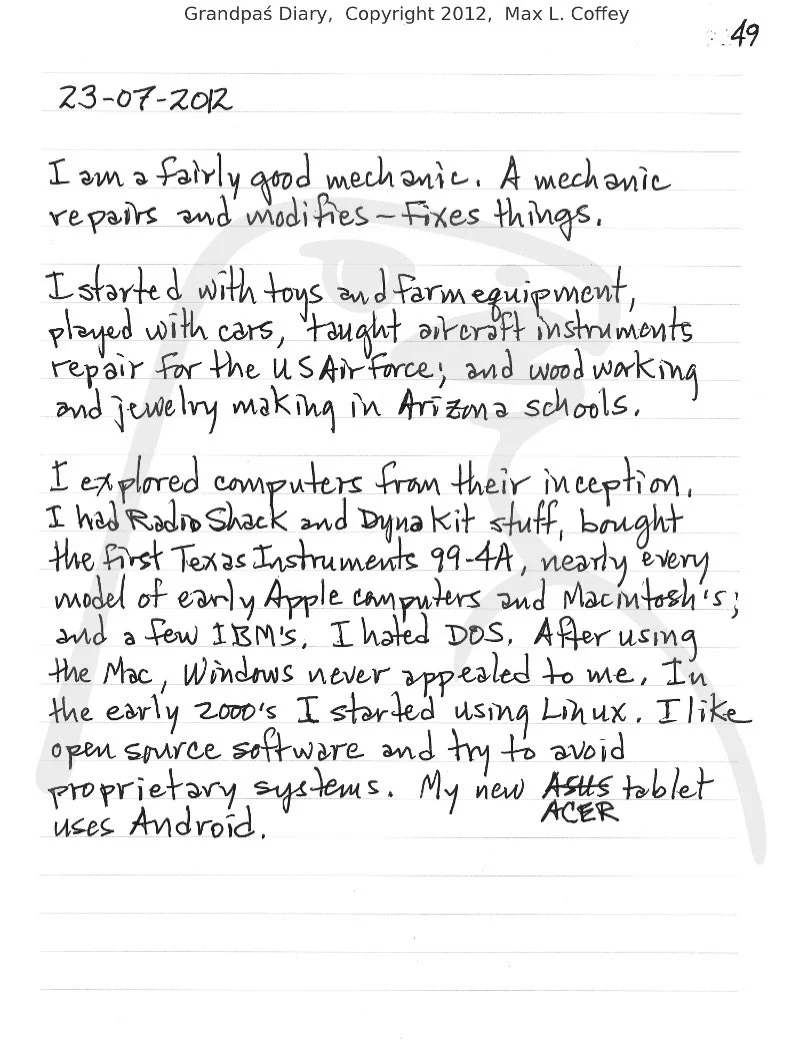 Grandpaś Diary, Copyright 2012, Max L. Coffey
49
23-07-2012
I am a fairly good mechanic. A mechanic
repairs and modifies - Fixes things.
I started with toys and farm equipment,
played with cars, taught aircraft instruments
repair for the US Air Force; and wood working
and jewelry making in Arizona schools.
I explored computers from their inception.
I had Radio Shack and Dyna Kit stuff, bought
the first Texas Instruments 99-4A, nearly every
model of early Apple computers and Macintosh's;
and a few IBM's. I hated DOS. After using
the Mac, Windows never appealed to me. In
the early 2000's I started using Linux. I like
open source software and try to avoid
proprietary systems. My new ASUS tablet
ACER
uses Android.